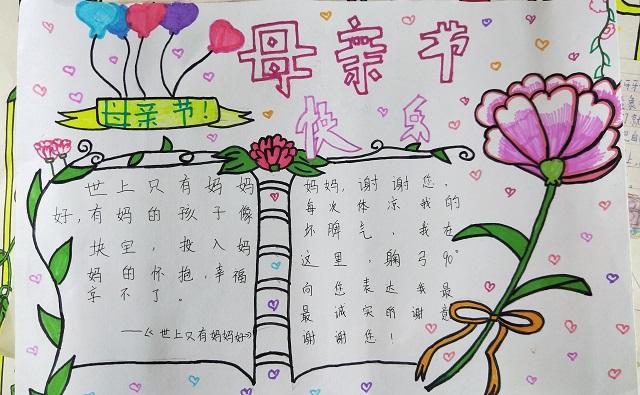 母亲节
快乐
母亲节!
世上只有妈妈
好,有妈的孩子像
块宝,投入妈
妈的怀抱,幸福
享不了。
——《世上只有妈妈好》
妈妈,谢谢您,
每次体凉我的
坏脾气,我在
这里,鞠弓90°
向您表达我最
最诚实的谢意
谢谢您!